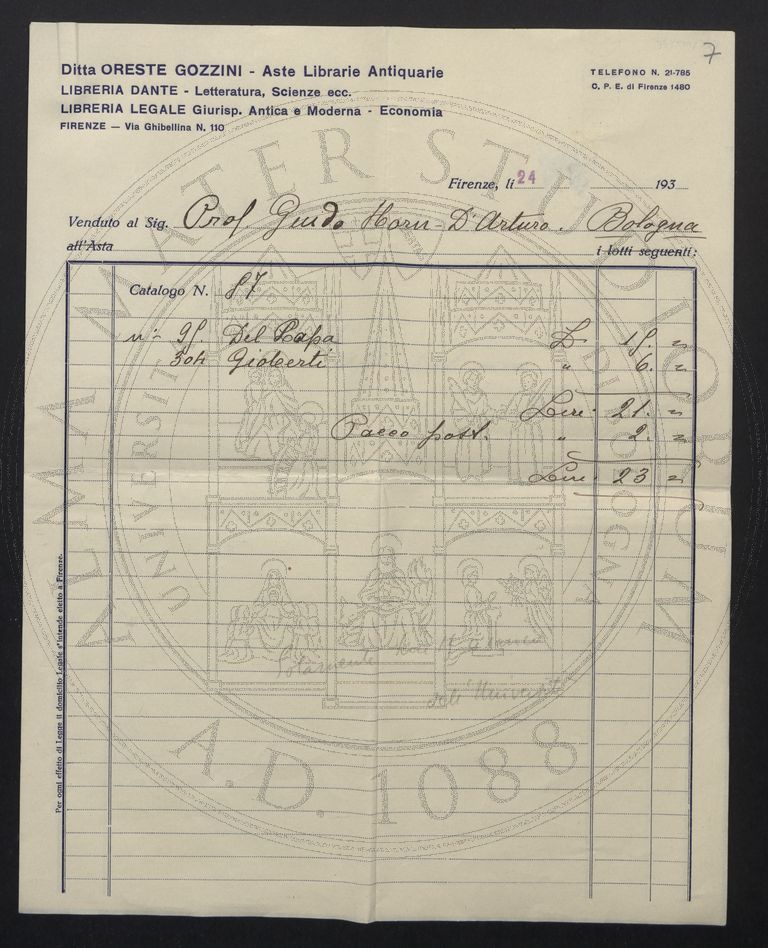 7
Ditta ORESTE GOZZINI - Aste Librarie Antiquarie
LIBRERIA DANTE - Letteratura, Scienze ecc.
LIBRERIA LEGALE Giurisp. Antica e Moderna - Economia
FIRENZE — Via Ghibellina N. 110
TELEFONO N. 21-785
C. P. E. di Firenze 1480
Firenze, li 24 193
Venduto al Sig. Prof Guido Horn-D'Arturo. Bologna
all'Asta i lotti seguenti:
Catalogo N. 87
n:- 95. Del Papa L. 15. "
304 Gioberti " 6. "
Lire: 21. "
Pacco post. " 2. "
Lire: 23 "
dell'Università
Per ogni effetto di Legge il domicilio Legale s'intende eletto a Firenze.
ALMA MATER STUDIORUM
UNIVERSITÀ BOLOGNA
A.D. 1088